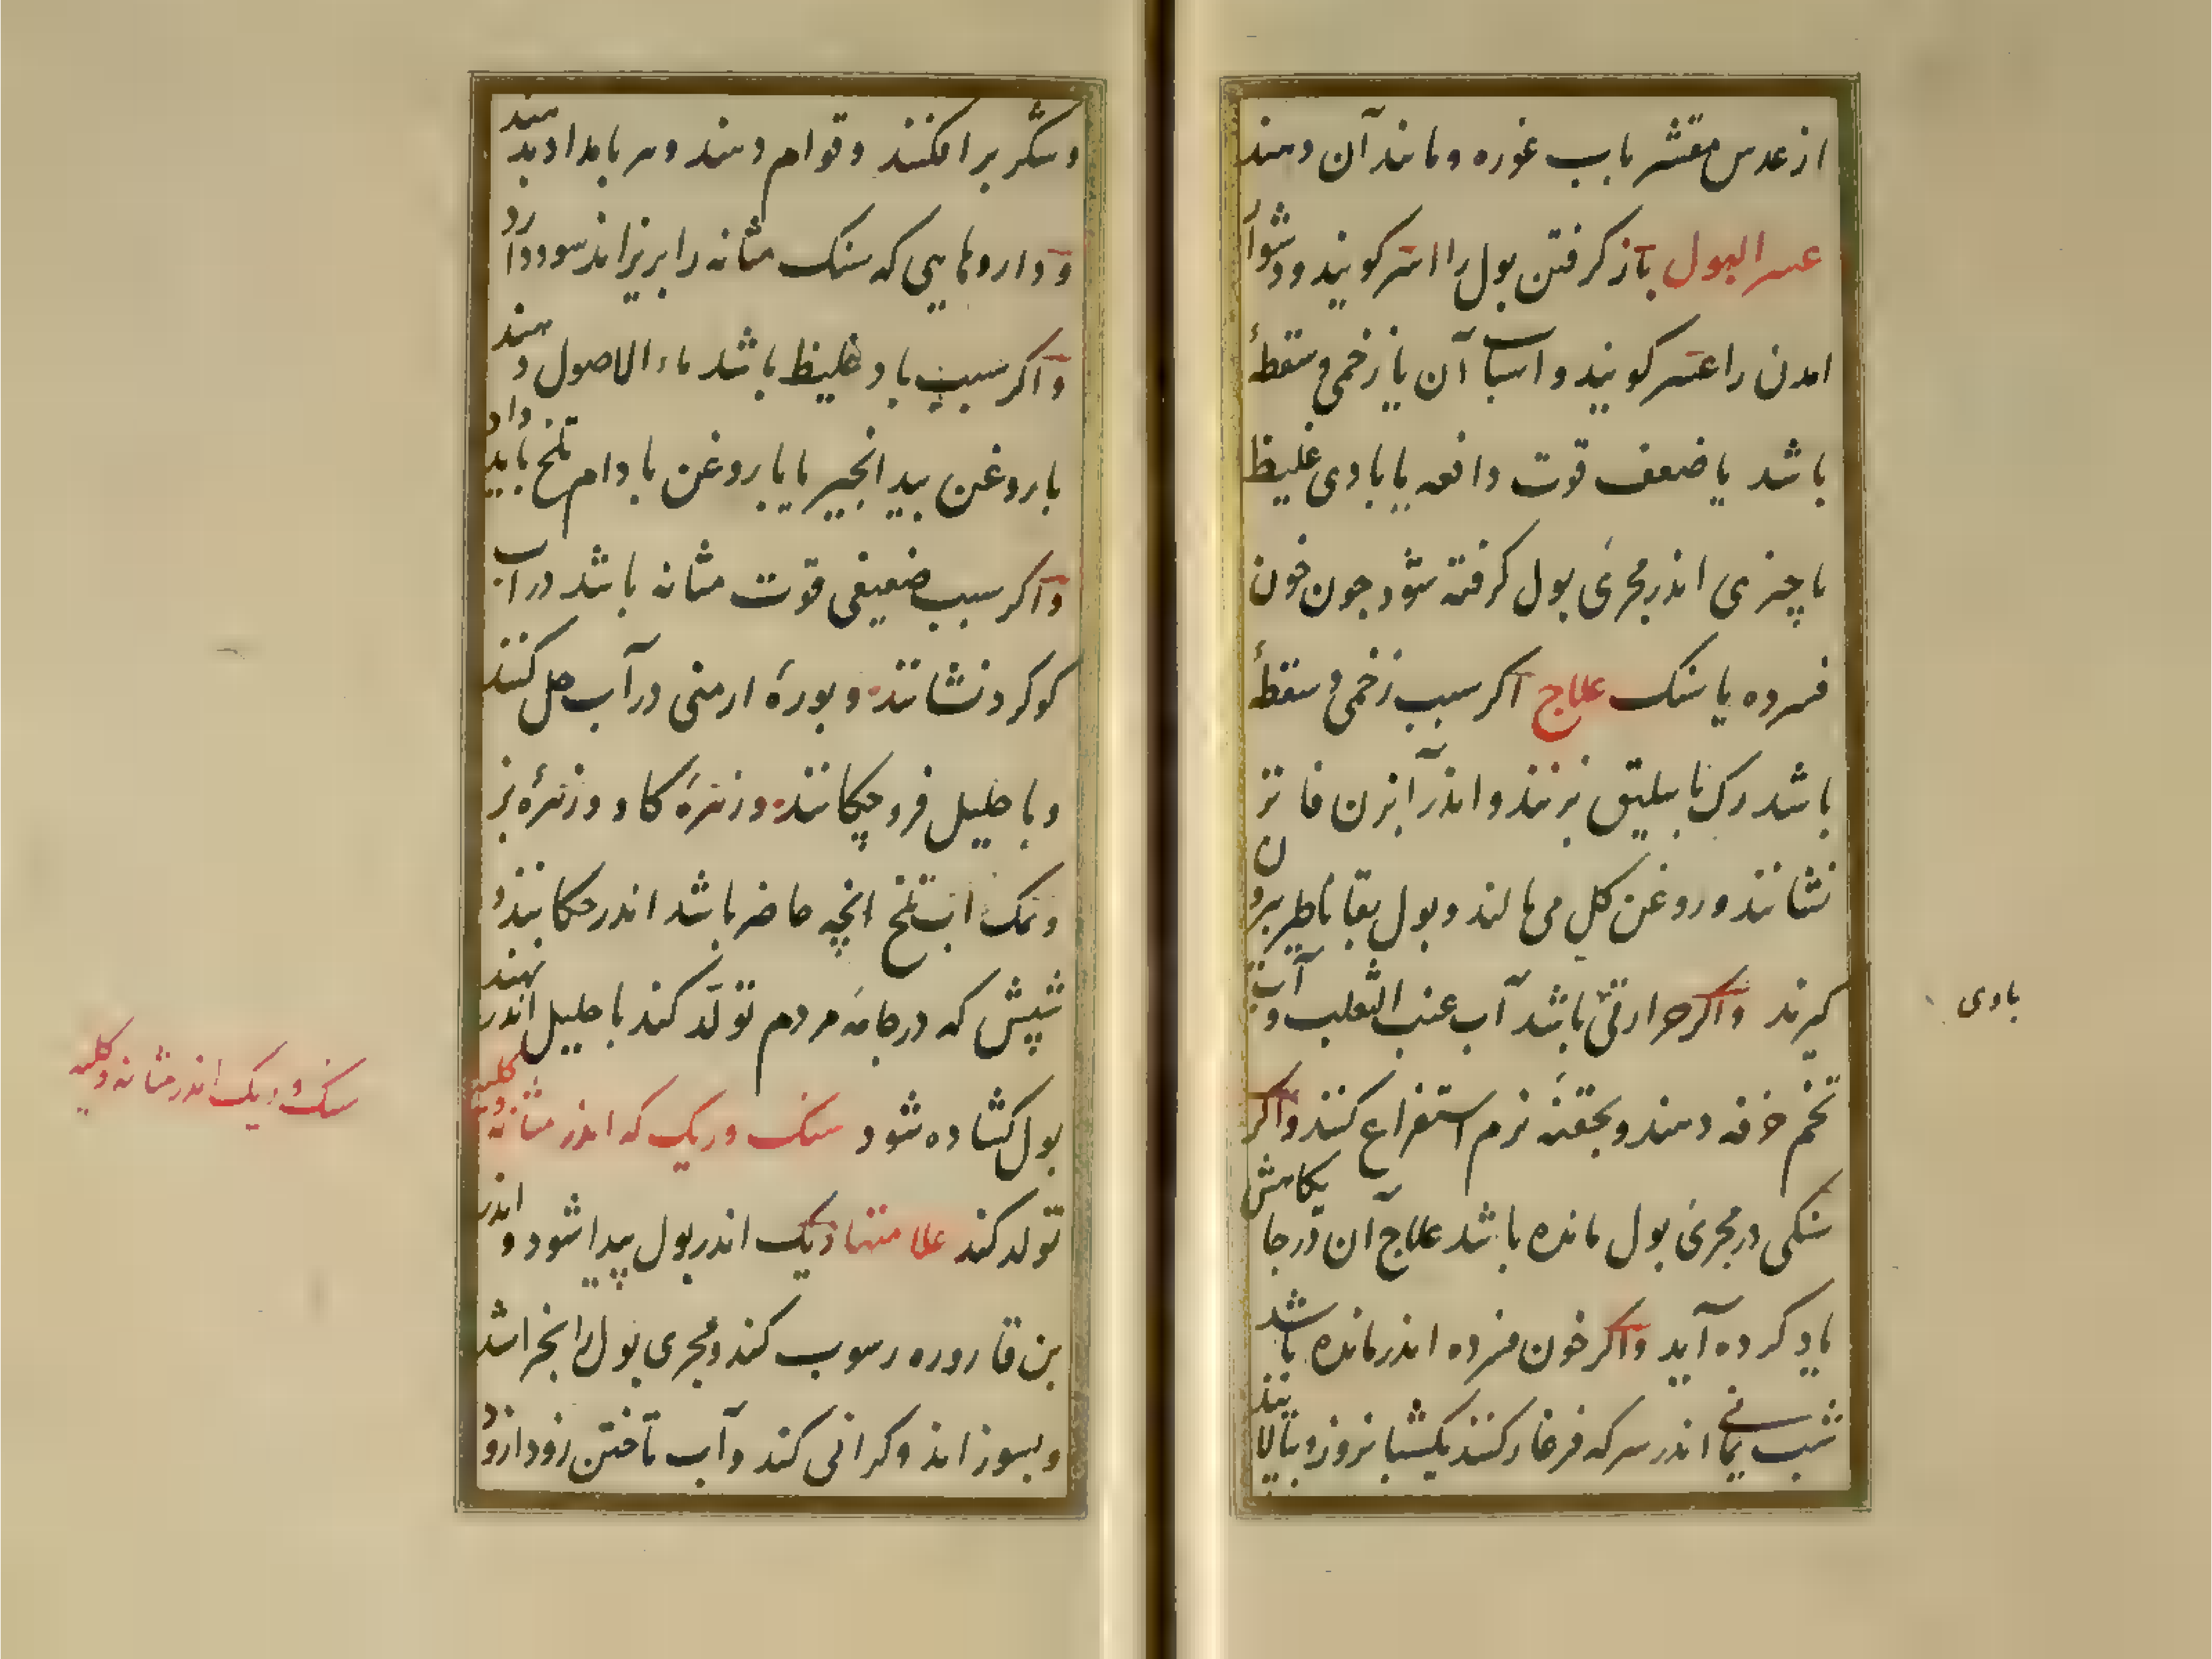 از عدس مقشر باب غوره و مانند آن دهند
عسر البول باز کرفتن بول را اسر کویند و دشوار
امدن را عسر کویند و اسباب آن یا زخمی و سقطهٔ
باشد یا ضعف قوت دافعه یا بادی غلیظ
یا چیزی اندر مجرئ بول کرفته شود جون خون
فسرده یا سنک علاج اکر سبب زخمی و سقطهٔ
باشد رک باسلیق بزنند و اندر آبزن فاتر
نشانند و روغن کل می مالند و بول بقاثاطیر بیرون
کیرند و اکر حرارتی باشد آب عنب الثعلب و آب
تخم خرفه دهند و بحقنه نرم استفراغ کنند و اکر
سنکی در مجرئ بول مانده باشد علاج آن در جایکاهش
یاد کرده آید و اکر خون فسرده اندر مانده باشد
شب یمانی اندر سرکه فرغار کنند یکشبانروز و بپالایند
بادی
وشکر برافکنند و قوام دهند و هر بامداد بدهند
و داروهایی که سنک مثانه را بریزاند سود دارد
و اکر سبب باد غلیظ باشد ماء الاصول دهند
با روغن بید انجیر یا با روغن بادام تلخ باید داد
و اکر سبب ضعیفی قوت مثانه باشد در آب
کوکرد نشانند و بورهٔ ارمنی در آب حل کنند
و باحلیل فرو چکانند و زهرهٔ کاو و زهرهٔ بز
و نمک اب تلخ انچه حاضر باشد اندر چکانند و
شپش که در جامهٔ مردم تولد کند باحلیل اندر نهند
بول کشاده شود سنک و ریک که اندر مثانه و کلیه
تولد کند علامتها ریک اندر بول پیدا شود و اندر
بن قاروره رسوب کند و مجری بول را بخراشد
و بسوزاند و کرانی کند و آب تاختن زود ازو
سنک و ریک اندر مثانه و کلیه